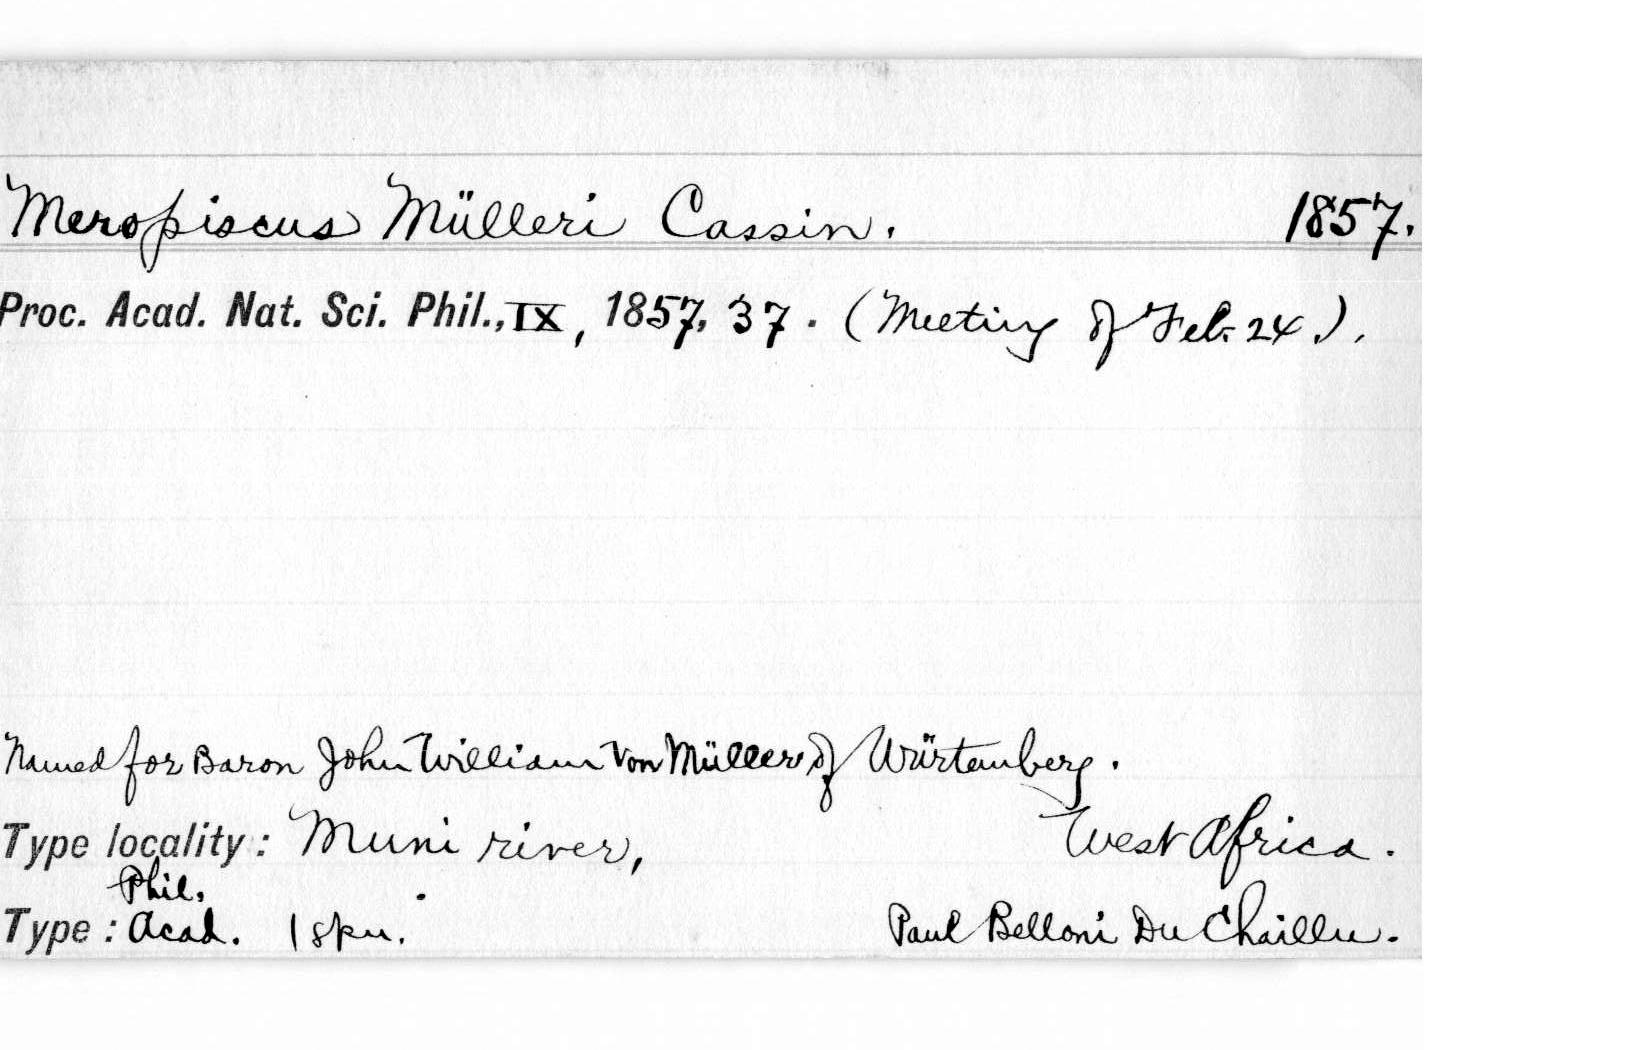 Meropiscus Mülleri Cassin. 1857.
Proc. Acad. Nat. Sci. Phil., IX, 1857, 37. (Meeting of Feb. 24.).
Named for Baron John William Von Müller of Würtemberg.
Type locality: Muni river, West Africa.
Phil.
Type: Acad. 1 spm. Paul Belloni Du Chaillu.